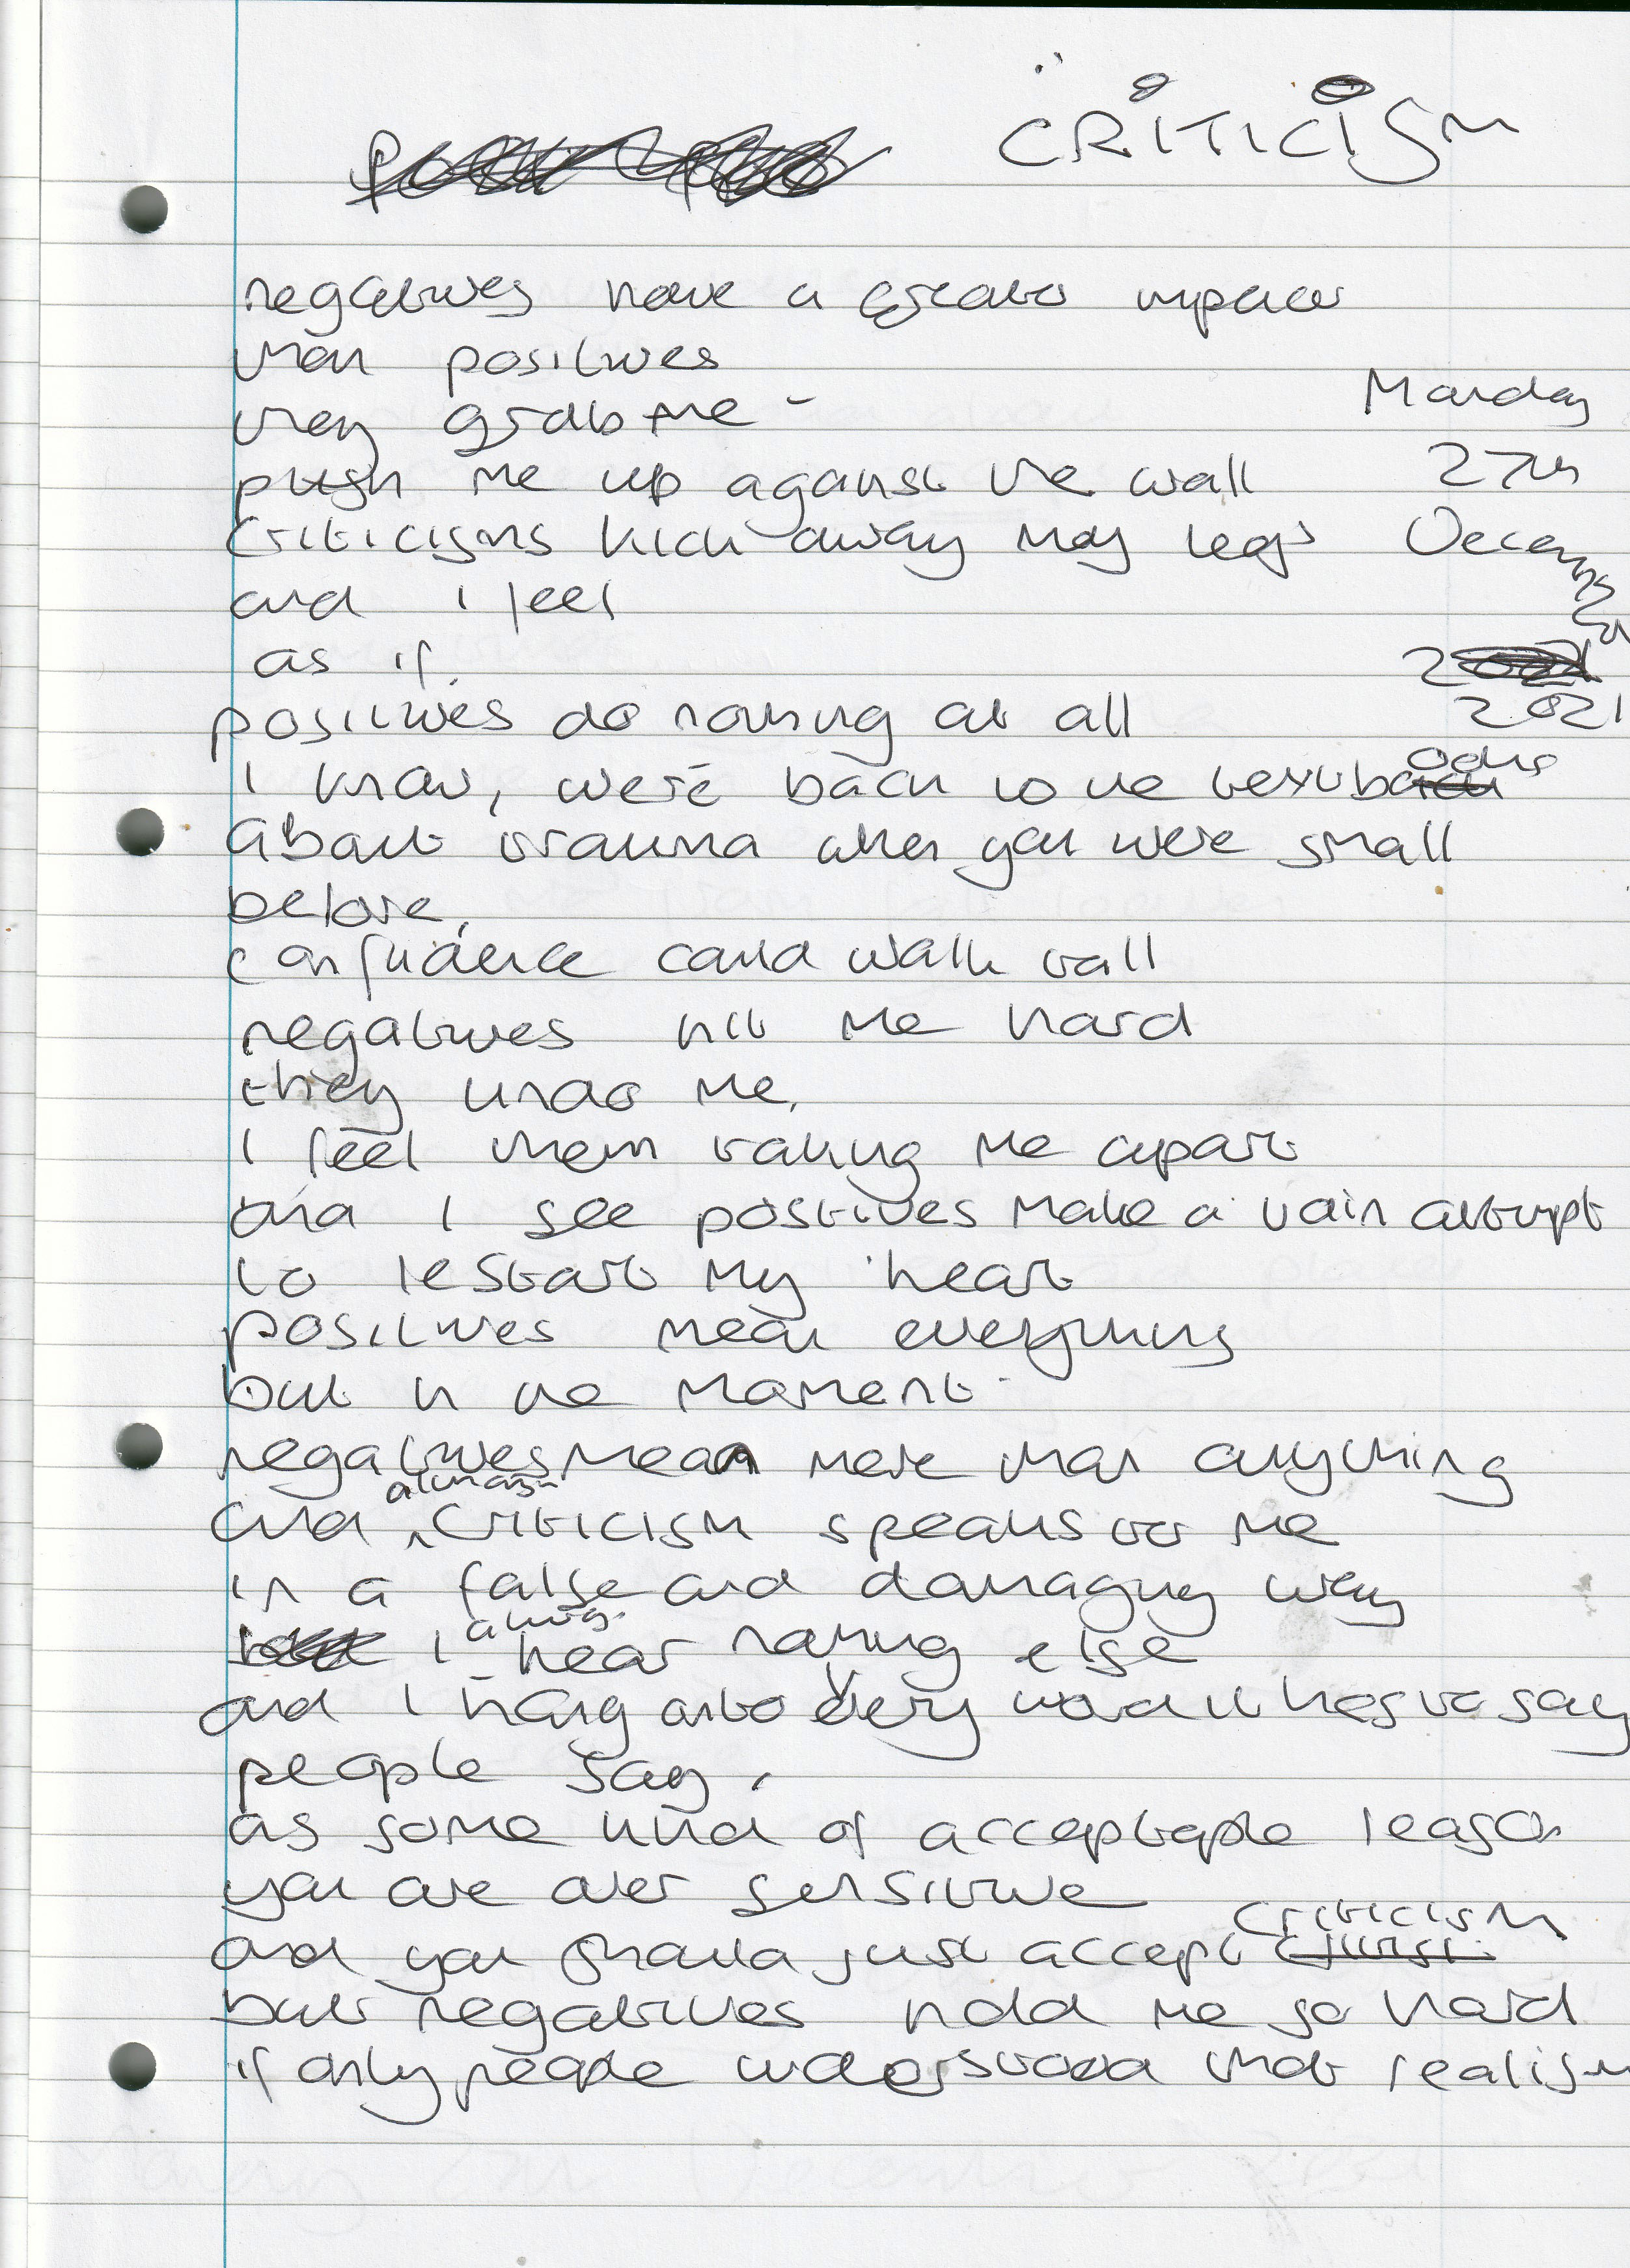 CRITICISM
negatives have a greater impact
than positives
they grab me -
push me up against the wall
criticisms kick away my legs
and i feel
as if
positives do nothing at all
I know, we're back to the textbooks
about trauma when you were small
before,
confidence could walk tall
negatives hit me hard
they undo me,
I feel them taking me apart
and I see positives make a vain attempt
to restart my heart
positives mean everything
but in the moment
negatives mean more than anything
and almost criticism speaks to me
in a false and damaging way
I always hear nothing else
and I hang onto every word it has to say
people say,
as some kind of acceptable reason
you are over sensitive
and you should just accept criticism
but negatives hold me so hard
if only people understood that realism
Monday
27th
December
2021